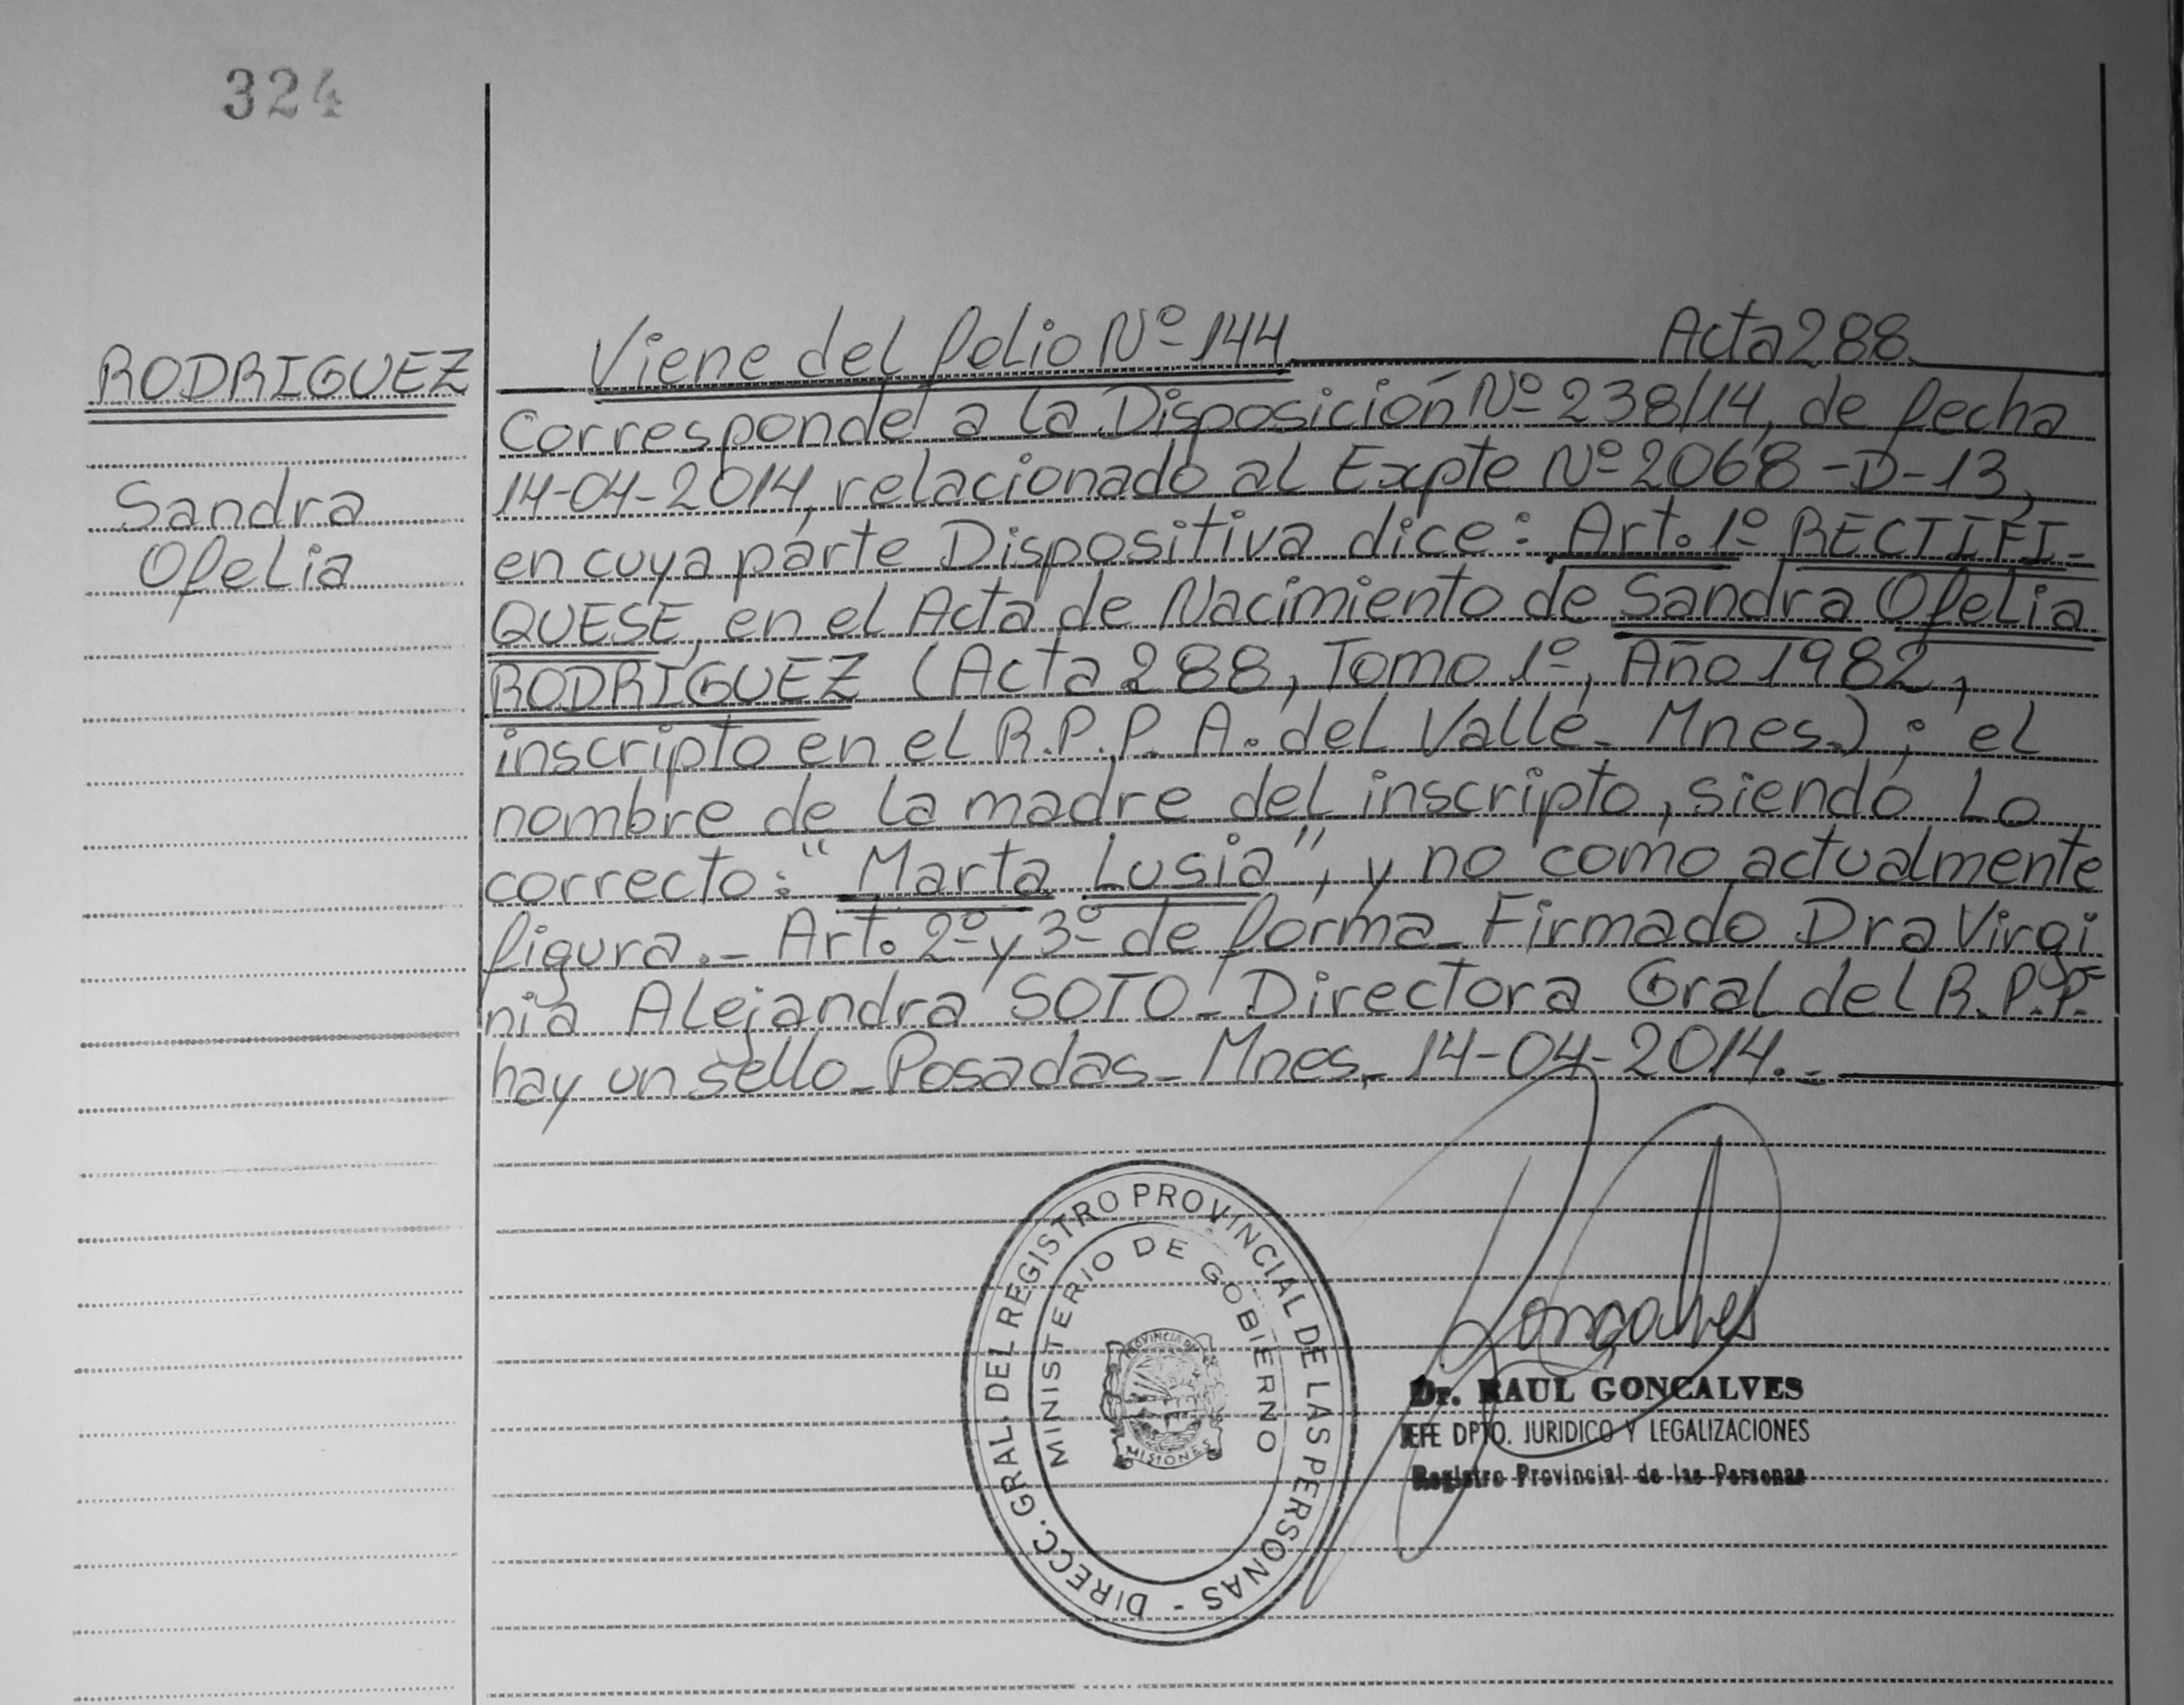 324
RODRIGUEZ
Sandra
Ofelia
Viene del folio Nº 144 Acta 288.
Corresponde a la Disposición Nº 238/14, de fecha
14-04-2014, relacionado al Expte Nº 2068-D-13,
en cuya parte Dispositiva dice: Art. 1º RECTIFI-
QUESE, en el Acta de Nacimiento de Sandra Ofelia
RODRIGUEZ (Acta 288, Tomo 1º, Año 1982,
inscripto en el R.P.P. A. del Valle- Mnes.); el
nombre de la madre del inscripto, siendo lo
correcto: "Marta Lusia", y no como actualmente
figura.- Art. 2º y 3º de forma- Firmado Dra Virgi
nia Alejandra SOTO- Directora Gral del R.P.P.-
hay un sello- Posadas- Mnes,- 14-04-2014.-
DIRECC. GRAL. DEL REGISTRO PROVINCIAL DE LAS PERSONAS -
MINISTERIO DE GOBIERNO
PROVINCIA DE
MISIONES
Goncalves
Dr. RAUL GONCALVES
JEFE DPTO. JURIDICO Y LEGALIZACIONES
Registro Provincial de las Personas